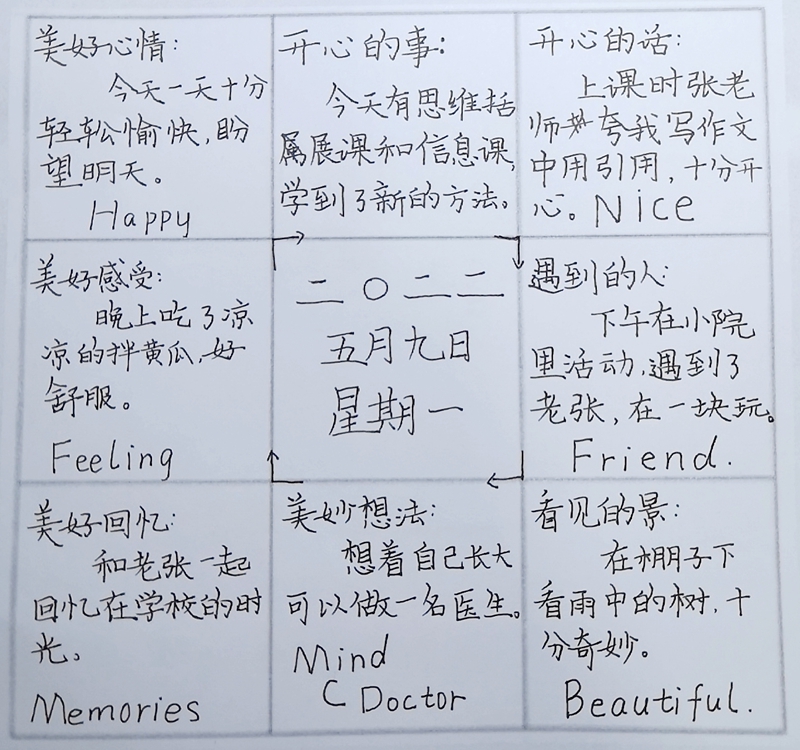 美好心情:
今天一天十分
轻轻松愉快,盼
望明天。
Happy
开心的事:
今天有思维括
属展课和信息课,
学到了新的方法。
开心的话:
上课时张老
师夸我写作文
中用引用,十分开
心。Nice
美好感受:
晚上吃了凉
凉的拌黄瓜,好
舒服。
Feeling
二〇二二
五月九日
星期一
遇到的人:
下午在小院
里活动,遇到了
老张,在一块玩。
Friend.
美好回忆:
和老张一起
回忆在学校的时
光。
Memories
美妙想法:
想着自己长大
可以做一名医生。
Mind
C Doctor
看见的景:
在棚子下
看雨中的树,十
分奇妙。
Beautiful.